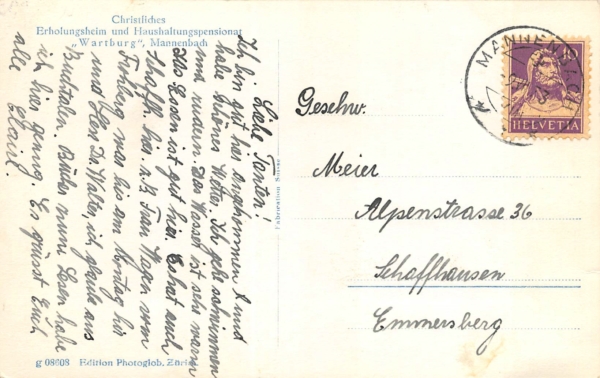 Christliches
Erholungsheim und Haushaltungspensionat
„Wartburg", Mannenbach
Liebe Tanten!
Ich bin gut hier angekommen & und
habe schönes Wetter. Ich gehe schwimmen
und rudern. Das Wasser ist sehr warm
Das Essen ist gut hier. Es hat auch
Schaffh. hier. z. B. Frau Hagen vom
war bis am Montag hir
und Herr Dr. Walter, ich glaube aus
Buchtalen. Bücher zum Lesen habe
ich hier genug. Es grüsst Euch
alle
Fabrication Suisse
MANNENBACH
HELVETIA
Geschw.
Meier
Alpenstrasse 36
Schaffhausen
Emmersberg
g 08608 Edition Photoglob, Zürich